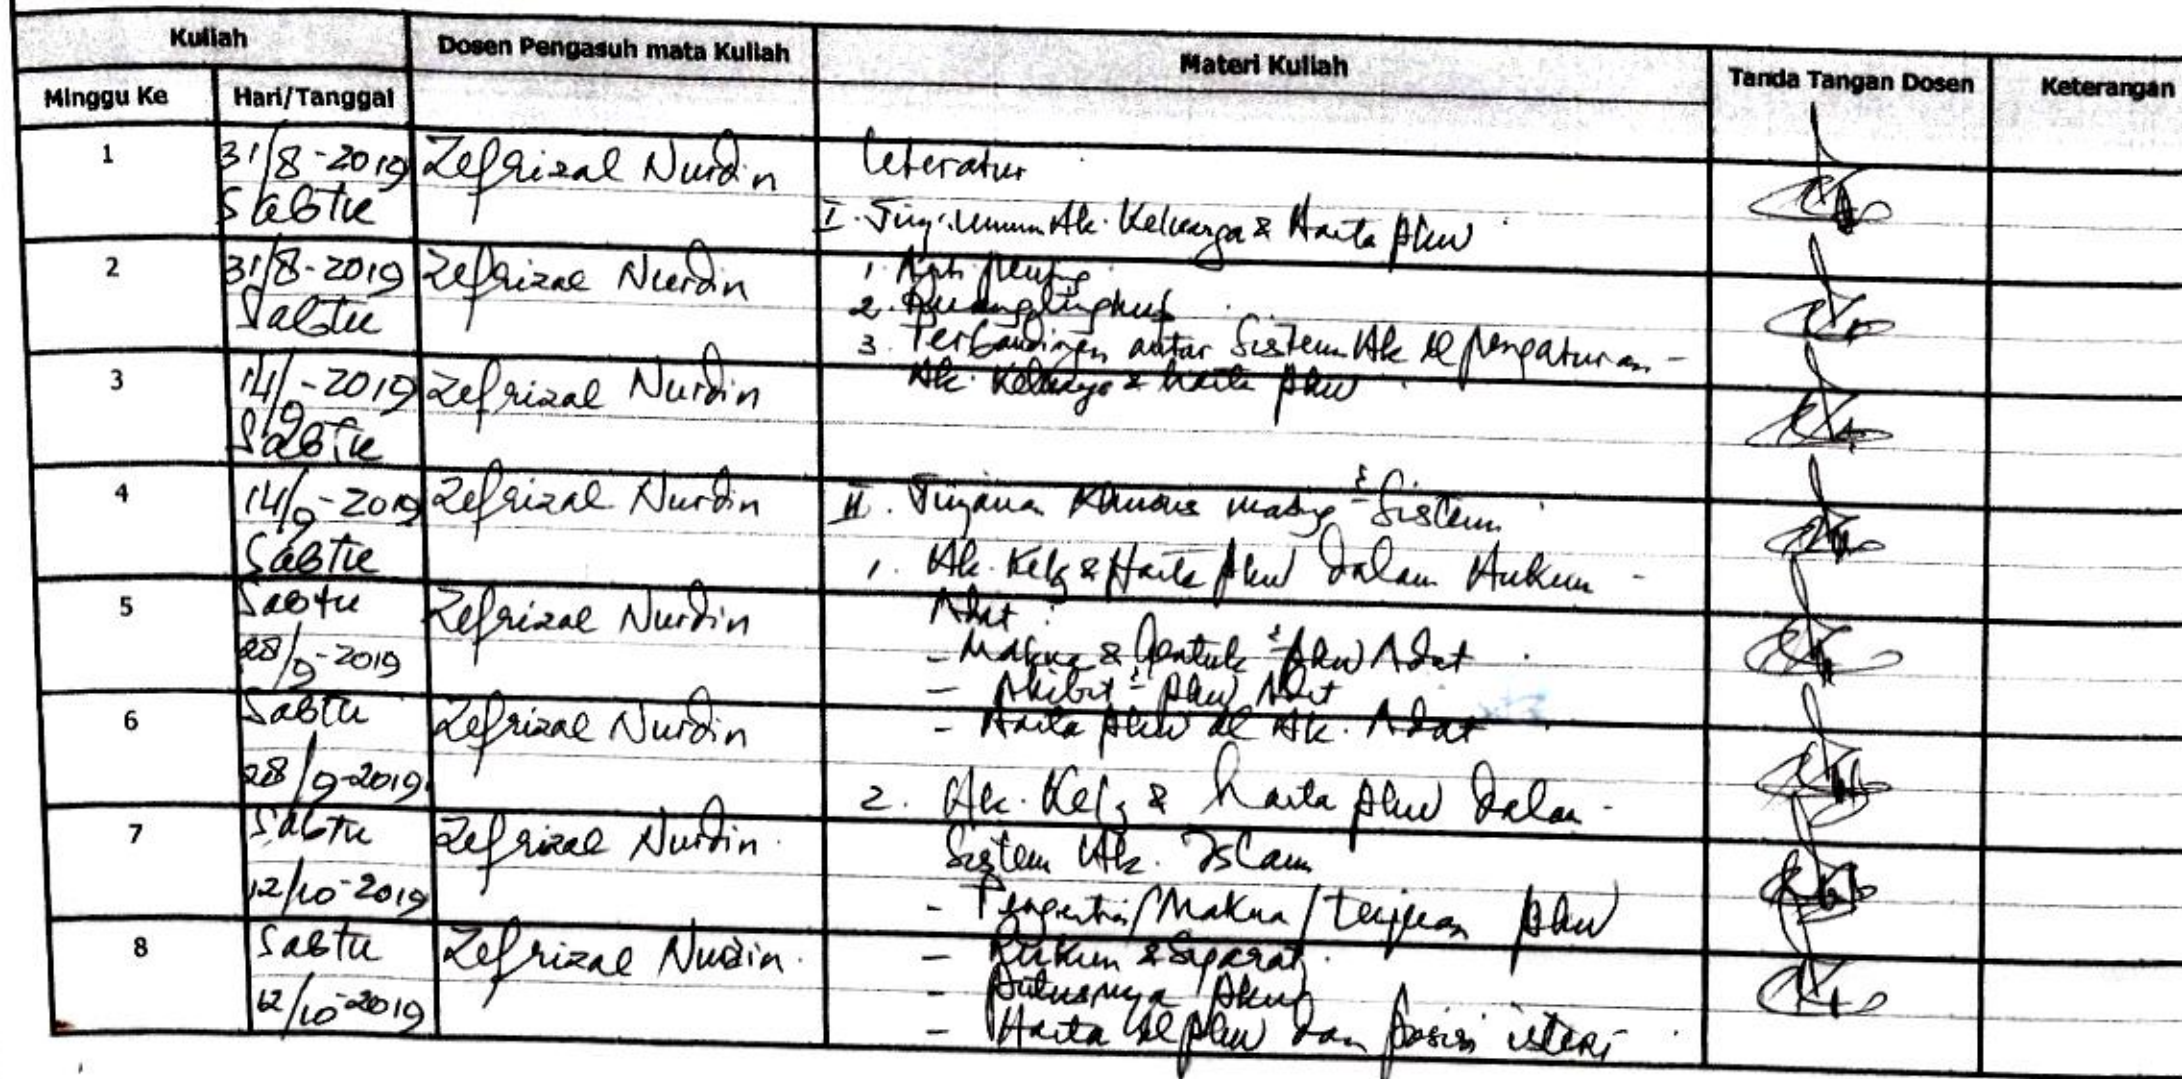 Kuliah
Dosen Pengasuh mata Kuliah
Materi Kuliah
Tanda Tangan Dosen
Keterangan
Minggu Ke
Hari/Tanggal
1
31/8-2019
Sabtu
Zefrizal Nurdin
Leteratur
I. Tinj. Umum Hk. Keluarga & Harta pkw
2
31/8-2019
Sabtu
Zefrizal Nurdin
1. Arti penting
2. Ruang lingkup
3. Perbandingan antar Sistem Hk dl pengaturan -
3
14/9-2019
Sabtu
Zefrizal Nurdin
Hk. Keluarga & harta pkw
4
14/9-2019
Sabtu
Zefrizal Nurdin
II. Tinjauan Khusus Sistem
1. Hk. Kelg & Harta pkw dalam Hukum -
5
Sabtu
28/9-2019
Zefrizal Nurdin
Adat :
- Makna & bentuk pkw Adat
- Akibat pkw Adat
6
Sabtu
28/9-2019
Zefrizal Nurdin
- Harta pkw dl Hk. Adat
2. Hk. Kelg & harta pkw dalam -
7
Sabtu
12/10-2019
Zefrizal Nurdin
Sistem Hk. Islam
- Pengertian/Makna/tujuan pkw
8
Sabtu
12/10-2019
Zefrizal Nurdin
- Rukun & Syarat
- putusnya pkw
- Harta dl pkw dan posisi isteri